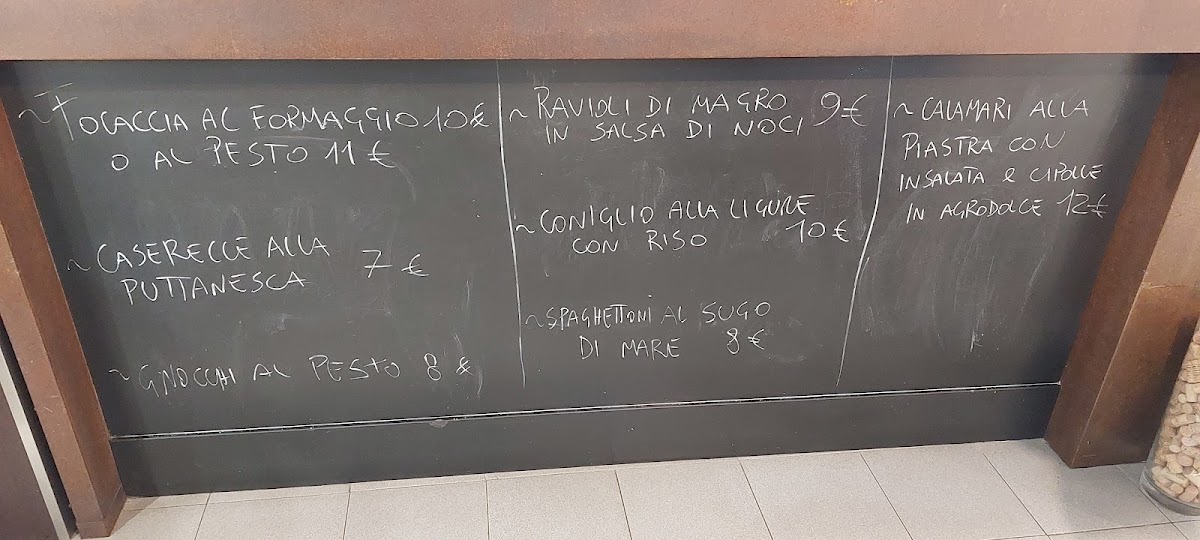 ~ FOCACCIA AL FORMAGGIO 10€
O AL PESTO 11€
~ CASERECCE ALLA
PUTTANESCA 7€
~ GNOCCHI AL PESTO 8€
~ RAVIOLI DI MAGRO 9€
IN SALSA DI NOCI
~ CONIGLIO ALLA LIGURE
CON RISO 10€
~ SPAGHETTONI AL SUGO
DI MARE 8€
~ CALAMARI ALLA
PIASTRA CON
INSALATA & CIPOLLE
IN AGRODOLCE 12€